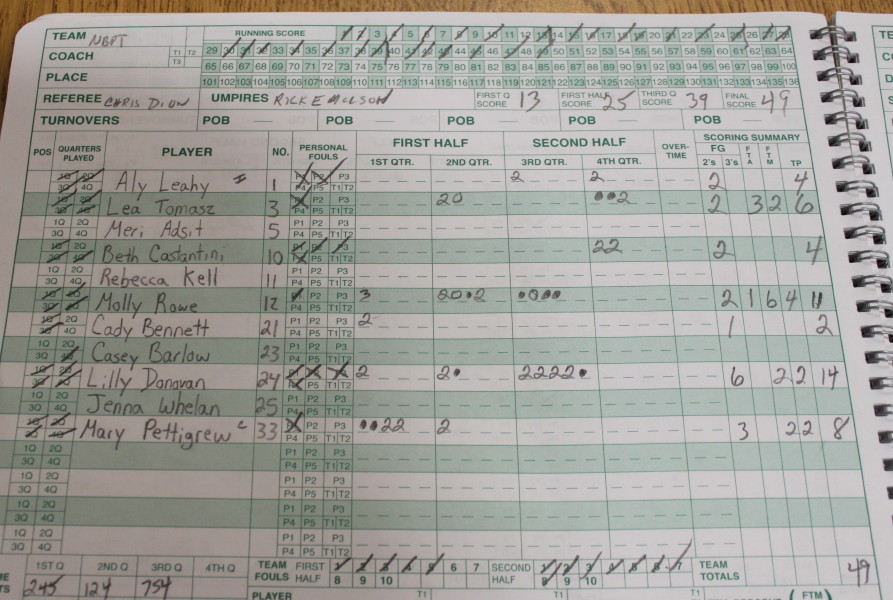 TEAM NBPT RUNNING SCORE 1 2 3 4 5 6 7 8 9 10 11 12 13 14 15 16 17 18 19 20 21 22 23 24 25 26 27 28
COACH T1 T2 T3 29 30 31 32 33 34 35 36 37 38 39 40 41 42 43 44 45 46 47 48 49 50 51 52 53 54 55 56 57 58 59 60 61 62 63 64
65 66 67 68 69 70 71 72 73 74 75 76 77 78 79 80 81 82 83 84 85 86 87 88 89 90 91 92 93 94 95 96 97 98 99 100
PLACE 101 102 103 104 105 106 107 108 109 110 111 112 113 114 115 116 117 118 119 120 121 122 123 124 125 126 127 128 129 130 131 132 133 134 135 136
REFEREE CHRIS DION UMPIRES RICK EMERSON FIRST Q SCORE 13 FIRST HALF SCORE 25 THIRD Q SCORE 39 FINAL SCORE 49
TURNOVERS POB POB POB POB POB
POS QUARTERS PLAYED PLAYER NO. PERSONAL FOULS FIRST HALF SECOND HALF OVER-TIME SCORING SUMMARY
1ST QTR. 2ND QTR. 3RD QTR. 4TH QTR. FG 2's 3's FTA FTM TP
1Q 2Q 3Q 4Q Aly Leahy 1 P1 P2 P3 P4 P5 T1 T2 2 2 2 4
1Q 2Q 3Q 4Q Lea Tomasz 3 P1 P2 P3 P4 P5 T1 T2 20 2 2 3 2 6
1Q 2Q 3Q 4Q Meri Adsit 5 P1 P2 P3 P4 P5 T1 T2
1Q 2Q 3Q 4Q Beth Castantini 10 P1 P2 P3 P4 P5 T1 T2 22 2 4
1Q 2Q 3Q 4Q Rebecca Kell 11 P1 P2 P3 P4 P5 T1 T2
1Q 2Q 3Q 4Q Molly Rowe 12 P1 P2 P3 P4 P5 T1 T2 3 20•2 •0•• 2 1 6 4 11
1Q 2Q 3Q 4Q Cady Bennett 21 P1 P2 P3 P4 P5 T1 T2 2 1 2
1Q 2Q 3Q 4Q Casey Barlow 23 P1 P2 P3 P4 P5 T1 T2
1Q 2Q 3Q 4Q Lilly Donovan 24 P1 P2 P3 P4 P5 T1 T2 2 2• 2222• 6 2 2 14
1Q 2Q 3Q 4Q Jenna Whelan 25 P1 P2 P3 P4 P5 T1 T2
1Q 2Q 3Q 4Q Mary Pettigrew c 33 P1 P2 P3 P4 P5 T1 T2 ••22 2 3 2 2 8
1Q 2Q 3Q 4Q P1 P2 P3 P4 P5 T1 T2
1Q 2Q 3Q 4Q P1 P2 P3 P4 P5 T1 T2
1Q 2Q 3Q 4Q P1 P2 P3 P4 P5 T1 T2
1Q 2Q 3Q 4Q P1 P2 P3 P4 P5 T1 T2
1ST Q 2ND Q 3RD Q 4TH Q TEAM FOULS FIRST HALF 1 2 3 4 5 6 7 8 9 10 SECOND HALF 1 2 3 4 5 6 7 8 9 10 TEAM TOTALS 49
245 124 754
PLAYER T1 T1 T1 (FTM)